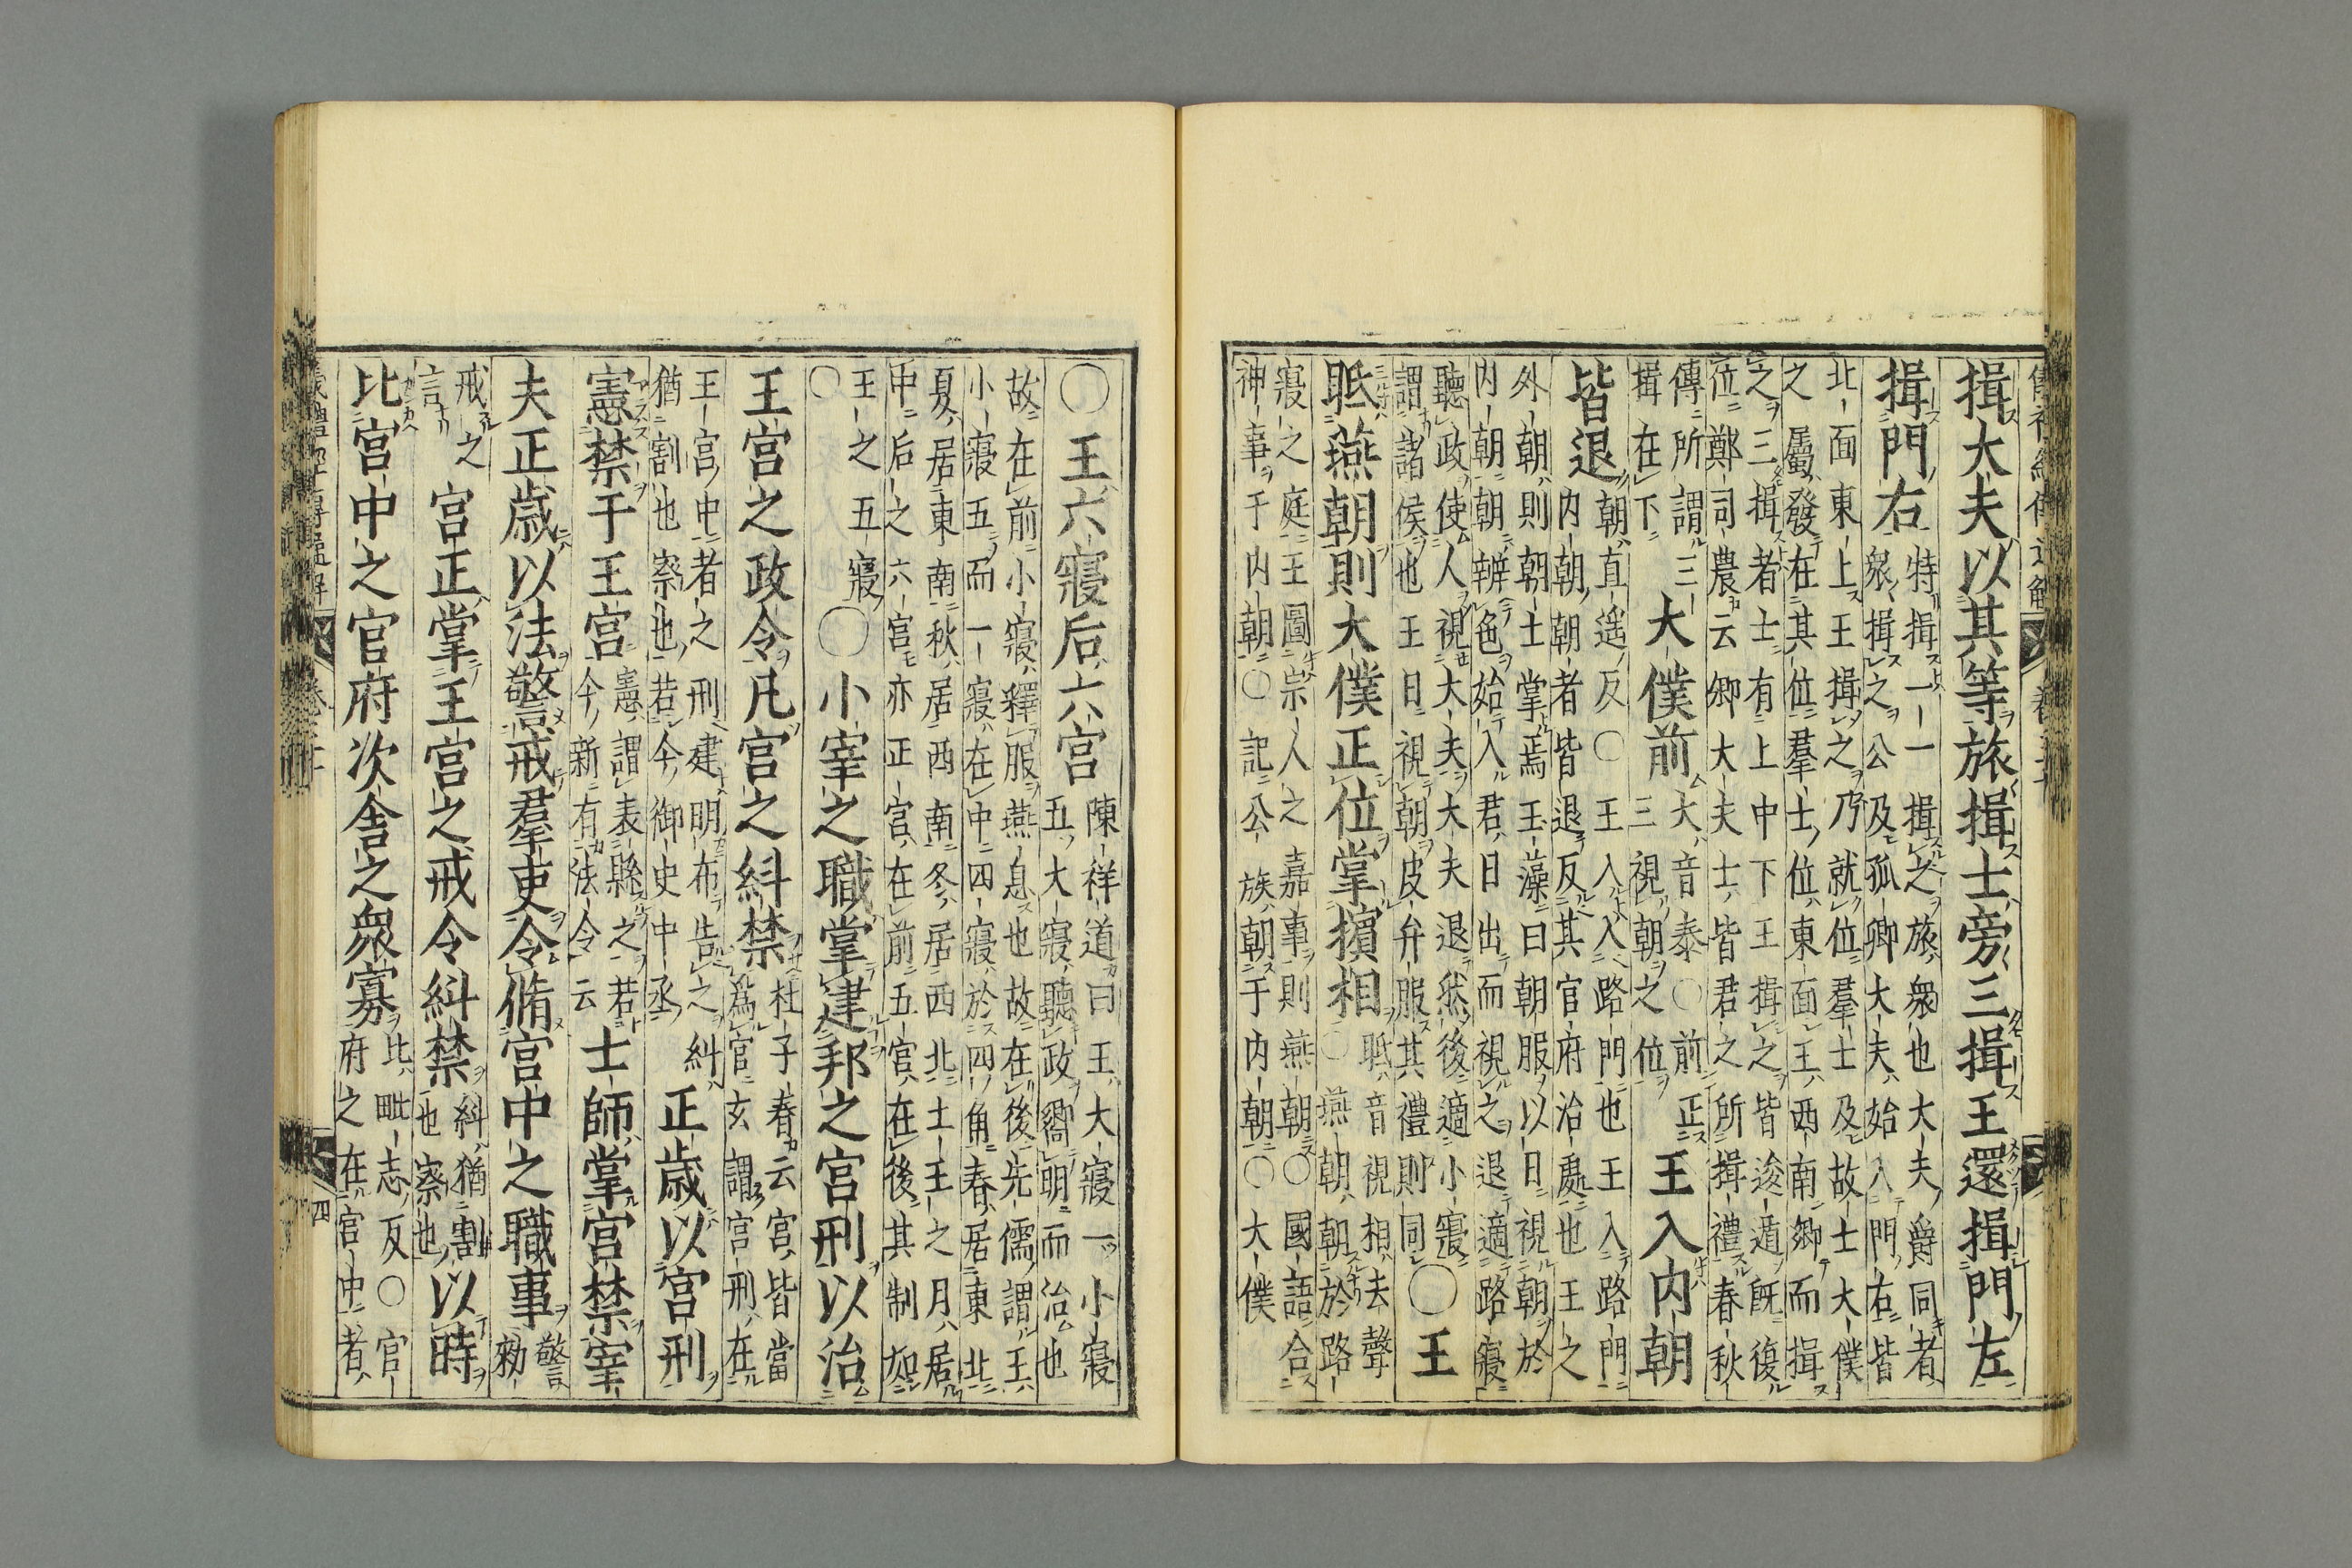 揖大夫以其等旅揖士旁三揖王還揖門左
揖門右
特揖一一揖之旅衆也大夫爵同者
衆揖之公及孤卿大夫始入門右皆
北面東上王揖之乃就位羣士及故士大僕
之屬發在其位羣士位東面王西南鄉而揖
之三揖者士有上中下王揖之皆逡遁既復
位鄭司農云卿大夫士皆君之所揖禮春秋
傳所謂三
揖在下
大僕前
大音泰○前正
三視朝之位
王入内朝
皆退
朝直遥反○王入入路門也王入路門
内朝朝者皆退反其官府治處也王之
外朝則朝士掌焉玉藻曰朝服以日視朝於
内朝朝辨色始入君日出而視之退適路寢
聽政使人視大夫大夫退然後適小寢
謂諸侯也王日視朝皮弁服其禮則同
○王
眡燕朝則大僕正位掌擯相
眡音視相去聲
○燕朝朝於路
寢之庭王圖宗人之嘉事則燕朝○國語合
神事于内朝○記公族朝于内朝○大僕
○王六寢后六宮
陳祥道曰王大寢一小寢
五大寢聽政嚮明而治也
故在前小寢釋服燕息也故在後先儒謂王
小寢五而一寢在中四寢於四角春居東北
夏居東南秋居西南冬居西北土王之月居
中后之六宮亦正宮在前五宮在後其制如
王之五寢
○
○小宰之職掌建邦之宮刑以治
王宮之政令凡宮之糾禁
杜子春云宮皆當
為官玄謂宮刑在
王宮中者之刑建明布告之糾
猶割也察也若今御史中丞
正歳以宮刑
憲禁于王宮
憲謂表縣之若
今新有法令云
士師掌宮禁宰
夫正歳以法警戒羣吏令脩宮中之職事
警
勑
戒之
言
宮正掌王宮之戒令糾禁
糾猶割
也察也
以時
比宮中之官府次舍之衆寡
比毗志反○官
府之在宮中者
四